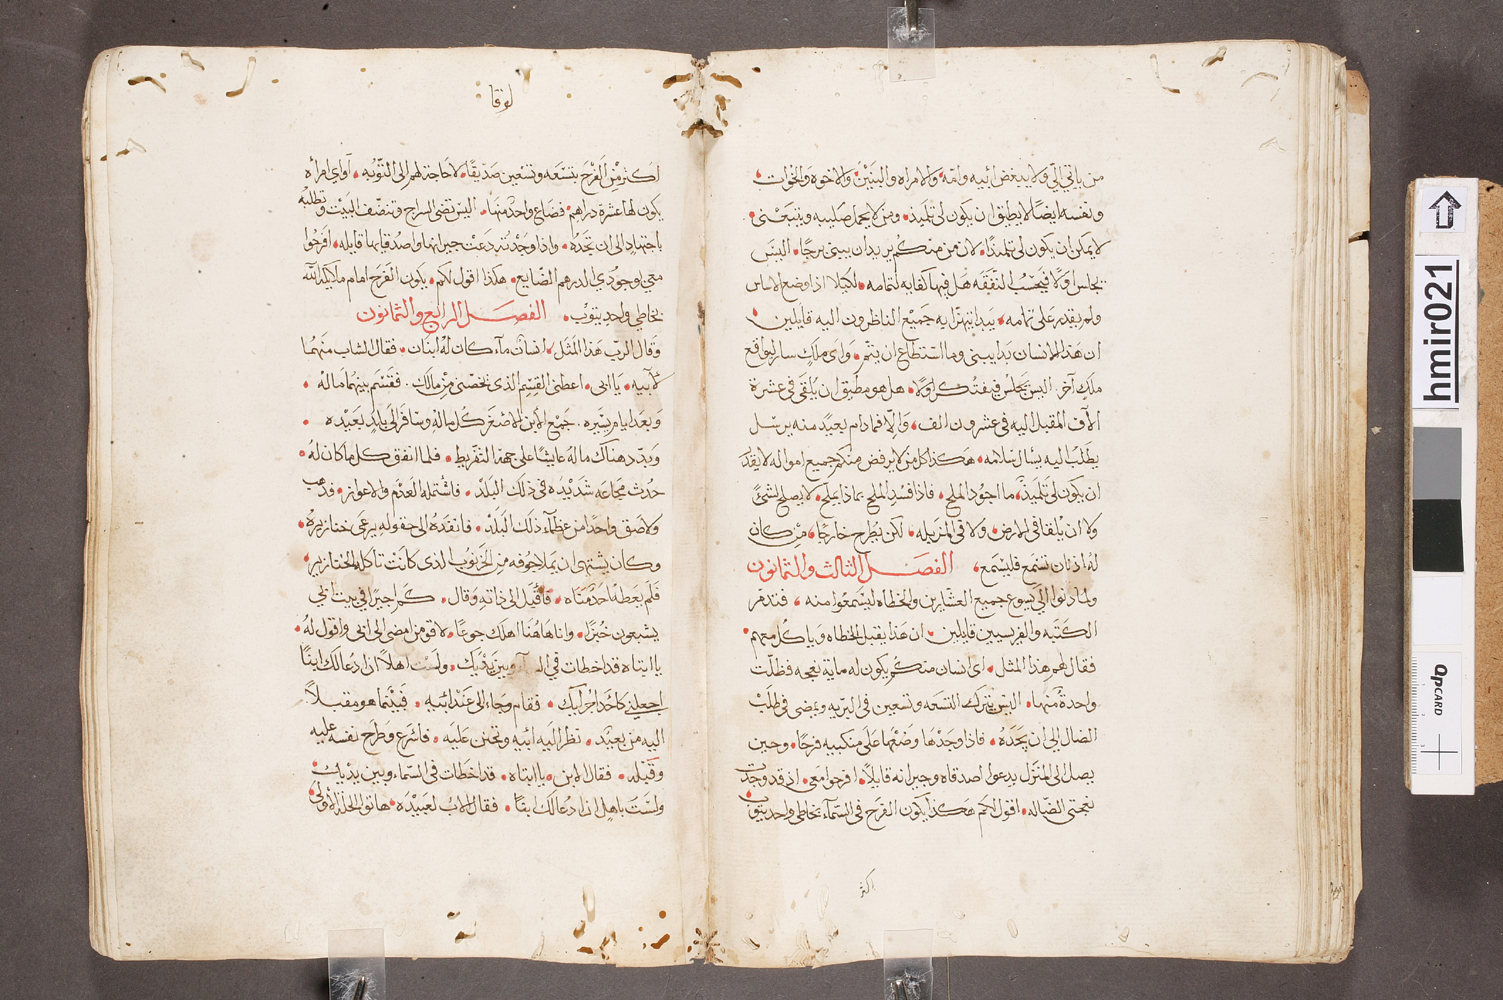 من ياتي الي ولا يبغض ابيه وامه والامراه والبنين والاخوه والخوات
ونفسه ايضًا لا يطيق ان يكون لي تلميد ومن لا يحمل صليبه ويتبعني
لا يمكن ان يكون لي تلمذًا لان من منكم يريد ان يبني برجًا اليس
يجلس اولًا فيحسب النفقه هل فيها كفايه لتمامه لكيلا اذا وضع الاساس
ولم يقدر على تمامه يبدا يتهزا به جميع الناظرون اليه قايلين
ان هذا الانسان بدا يبني وما استطاع ان يتم واي ملك سار ليواقع
ملك آخر اليس يجلس فيفتكر اولًا هل هو مطيق ان يلقى في عشرة
الآف المقبل اليه في عشرون الف والا فما دام بعيد منه يرسل
يطلب ليه يسال سلامه هكذا كل من لا يرفض منكم جميع امواله لا يقدر
ان يكون لي تلميذ ما اجود الملح فاذا فسد الملح بماذا يملح لا يصلح لشئ
ولا ان يلقا في الارض ولا في المزبله لكن يطرح خارجًا من كان
له اذنان تسمع فليسمع الفصل الثالث والثمانون
ولما دنوا الى يسوع جميع العشارين والخطاه ليسمعوا منه فتذمر
الكتبه والفريسيين قايلين ان هذا يقبل الخطاه وياكل معهم
فقال لهم هذا المثل اي انسان منكم يكون له ماية نعجه فظلت
واحدة منها اليس يترك التسعه وتسعين في البريه ويمضى في طلب
الضال الى ان يجده فاذا وجدها وضعها على منكبيه فرحًا وحين
يصل الى المنزل يدعوا اصدقاه وجيرانه قايلًا افرحوا معي اذ قد وجدت
نعجتي الضاله اقول لكم هكذا يكون الفرح في السماء بخاطي واحد يتوب
اكثر
لوقا
اكثر من الفرح بتسعه وتسعين صديقًا لا حاجة لهم الى التوبه او اي امراه
يكون لها عشرة دراهم فضاع واحد منها اليس تضي السراج وتنضف البيت وتطلبه
باجتهاد الى ان تجده واذا وجدته دعت جيرانها واصدقايها قايله افرحوا
معي لوجودي الدرهم الضايع هكذا اقول لكم يكون الفرح امام ملايكة الله
بخاطي واحد يتوب الفصل الرابع والثمانون
وقال الرب هذا المثل انسان ما كان له ابنان فقال الشاب منهما
لابيه يا ابي اعطني القسم الذي يخصني من مالك فقسم بينهما ماله
وبعد ايام يسيره جمع الابن الاصغر كل ماله وسافر الى بلد بعيده
وبدد هناك ماله عايشًا على جهة التفريط فلما انفق كل ما كان له
حدث مجاعه شديده في ذلك البلد فاشتمله العدم والاعواز فذهب
ولاصق واحدًا من عظماء ذلك البلد فانفده الى حقوله يرعى خنازيره
وكان يشتهي ان يملا جوفه من الخرنوب الذي كانت تاكله الخنازير
فلم يعطه احد مناه فاقبل الى ذاته وقال كم اجيرًا في بيت ابي
يشبعون خبزًا وانا هاهنا اهلك جوعًا لاقومن امضي الى ابي واقول له
يا ابتاه قد اخطات في السماء وبين يديك ولست اهلًا ان ادعا لك ابنًا
اجعلني كاحد اجرايك فقام وجاء الى عند ابيه فبينما هو مقبلًا
اليه من بعيد نظر اليه ابيه وتحنن عليه فاسرع وطرح نفسه عليه
وقبله فقال الابن يا ابتاه قد اخطات في السماء وبين يديك
ولست باهل ان ادعا لك ابنًا فقال الاب لعبيده هاتوا الحلة الاولى
hmir021
QPCARD